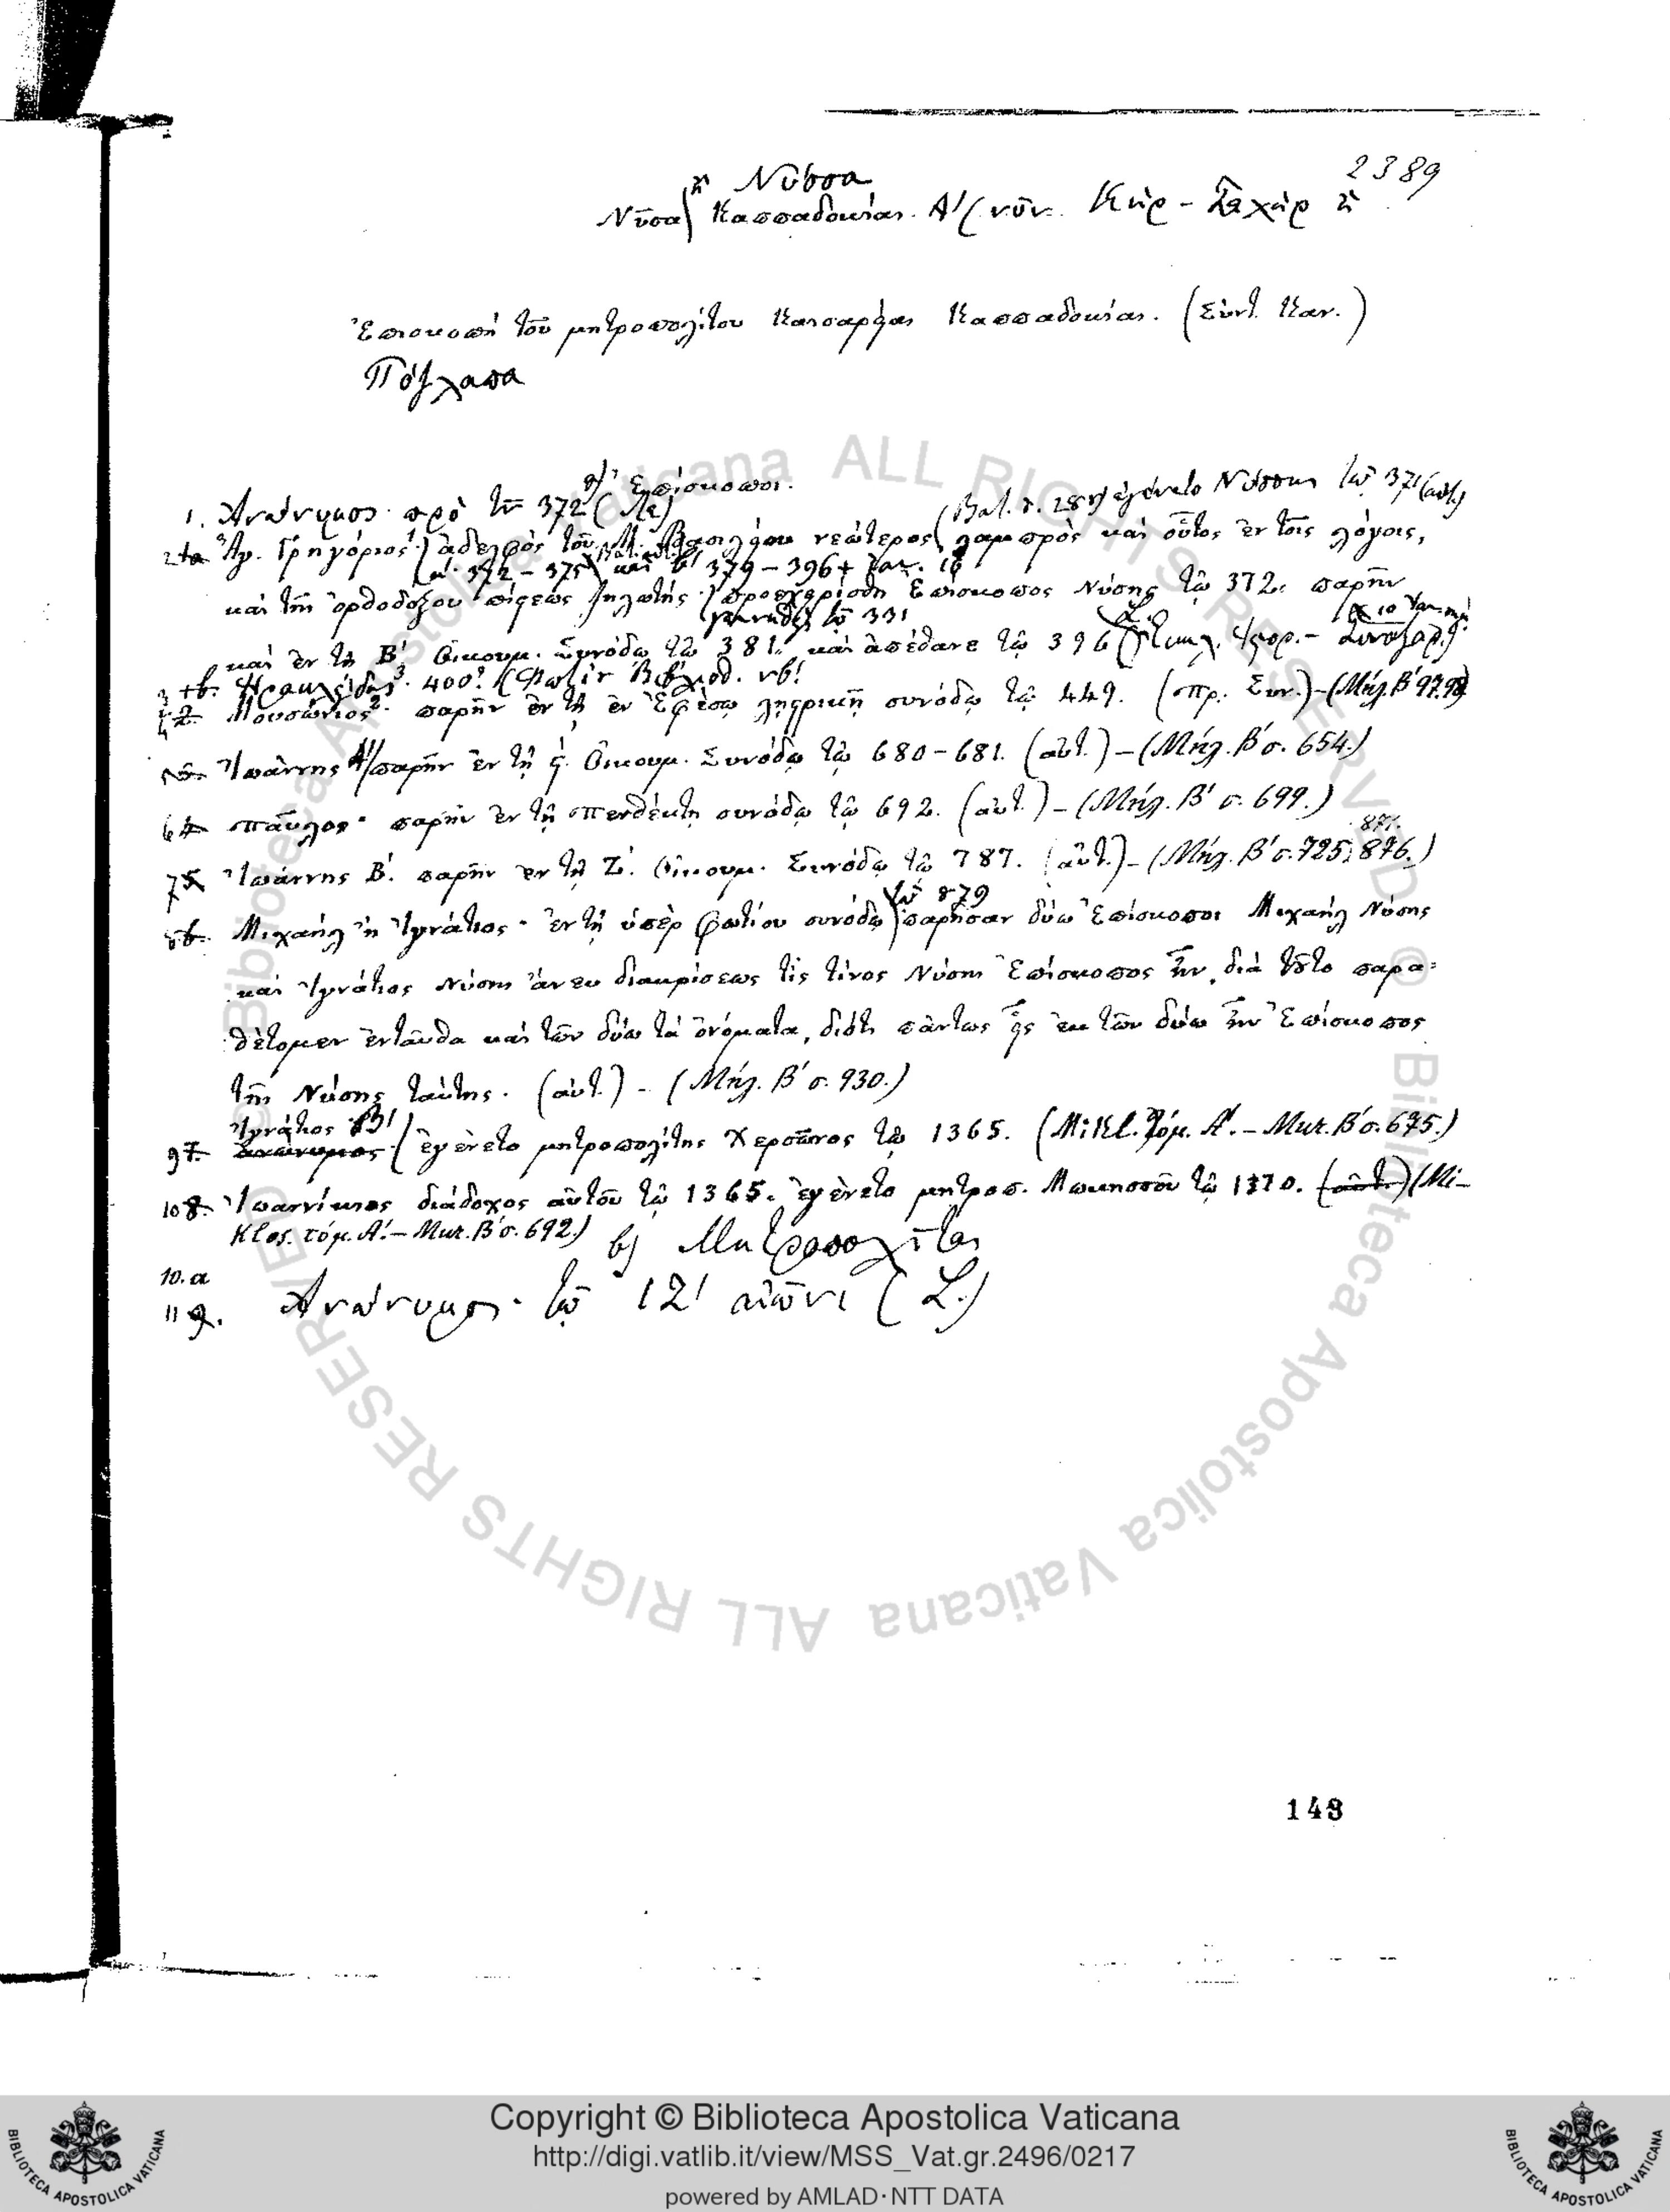 2389
ἢ Νύσσα
Νῦσα Καππαδοκίας. Α' (νῦν. Κιὶρ - Σεχὶρ ἢ
Ἐπισκοπὴ τοῦ μητροπολίτου Καισαρείας Καππαδοκίας. (Σύντ. Καν.)
α) Ἐπίσκοποι.
1. Ἀνώνυμος· πρὸ τοῦ 372 (Le)
(Βαλ. σ. 281) ἐγένετο Νύσσης τῷ 371 (αὐτ)
Ἅγ. Γρηγόριος ἀδελφὸς τοῦ Μ. Βασιλείου νεώτερος, λαμπρὸς καὶ οὗτος ἐν τοῖς λόγοις,
α' 372 – 375 καὶ β' 379 – 396 + Ἰαν. 10
καὶ τῆς ὀρθοδόξου πίστεως ζηλωτής, προεχειρίσθη Ἐπίσκοπος Νύσης τῷ 372. παρῆν
γεννηθεὶς τῷ 331
καὶ ἐν τῇ Β'. Οἰκουμ. Συνόδῳ τῷ 381. καὶ ἀπέθανε τῷ 396
+β. Ἡρακλείδης. 400? (Φωτίου Βιβλιοθ. νβ'.
4 Μουσώνιος· παρῆν ἐν τῇ ἐν Ἐφέσῳ λῃστρικῇ συνόδῳ τῷ 449. (πρ. Συν.) – (Μήλ. Β' 97.98)
Ἰωάννης Α' παρῆν ἐν τῇ ϛ'. Οἰκουμ. Συνόδῳ τῷ 680 - 681. (αὐτ.) – (Μήλ. Β' σ. 654.)
6 Παῦλος· παρῆν ἐν τῇ Πενθέκτῃ συνόδῳ τῷ 692. (αὐτ.) – (Μήλ. Β' σ. 699.)
871.
7 Ἰωάννης Β'. παρῆν ἐν τῇ Ζ'. Οἰκουμ. Συνόδῳ τῷ 787. (αὐτ.) – (Μήλ. Β' σ. 725, 876.)
τῷ 879
8 Μιχαὴλ ἢ Ἰγνάτιος· ἐν τῇ ὑπὲρ Φωτίου συνόδῳ παρῆσαν δύω Ἐπίσκοποι Μιχαὴλ Νύσης
καὶ Ἰγνάτιος Νύσης ἄνευ διακρίσεως τίς τίνος Νύσης Ἐπίσκοπος ἦν, διὰ τοῦτο παρα=
θέτομεν ἐνταῦθα καὶ τῶν δύω τὰ ὀνόματα, διότι πάντως εἷς ἐκ τῶν δύω ἦν Ἐπίσκοπος
τῆς Νύσης ταύτης. (αὐτ.) – (Μήλ. Β' σ. 930.)
Ἰγνάτιος Β'
9 7. Ἀνώνυμος ἐγένετο μητροπολίτης Χερσῶνος τῷ 1365. (Mikl. Τόμ. Α'. – Μυζ. Β' σ. 675.)
10 8. Ἰωαννίκιος διάδοχος αὐτοῦ τῷ 1365. ἐγένετο μητροπ. Μωκησσοῦ τῷ 1370. (αὐτ.) (Mi-
klos. τόμ. Α'. – Μυζ. Β' σ. 692.)
β) Μητροπολῖται
10. α
11 9. Ἀνώνυμος· τῷ 12' αἰῶνι (L.)
148
Copyright © Biblioteca Apostolica Vaticana
http://digi.vatlib.it/view/MSS_Vat.gr.2496/0217
powered by AMLAD·NTT DATA
BIBLIOTECA APOSTOLICA VATICANA
BIBLIOTECA APOSTOLICA VATICANA
© Biblioteca Apostolica Vaticana ALL RIGHTS RESERVED © Biblioteca Apostolica Vaticana ALL RIGHTS RESERVED